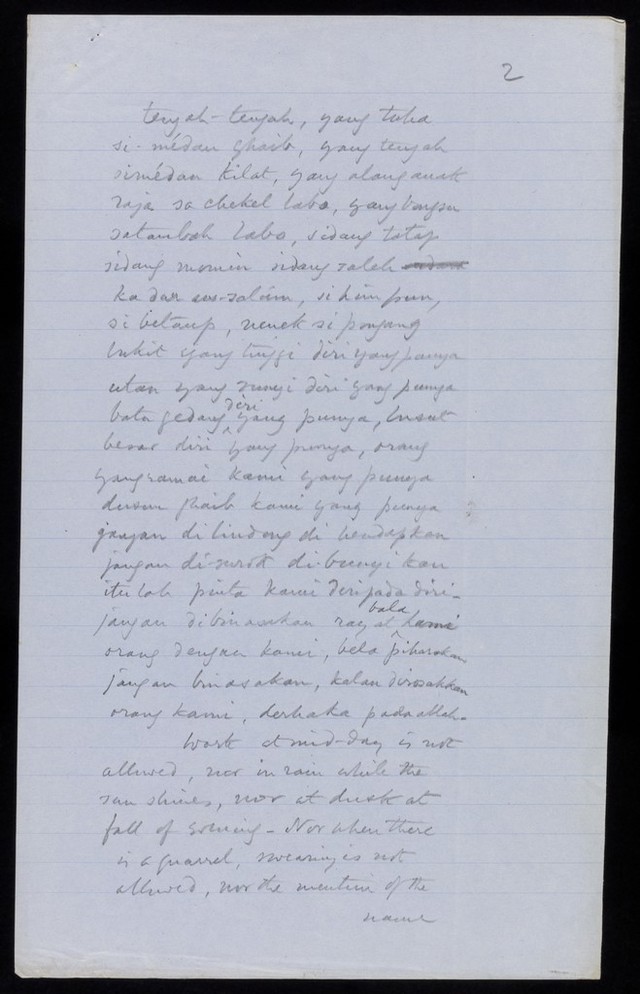 2
tengah-tengah, yang tuha
si-médan ghaib, yang tengah
simédan kilat, yang alang anak
raja sa chekel laba, yang bongsu
satambah laba, sidang tetap
sidang momin sidang saleh
ka dar us-salám, si himpun,
si betaup, nenek si ponjang
bukit yang tinggi diri yang punya
utan yang sunyi diri yang punya
batu gedang diri yang punya, busut
besar diri yang punya, orang
yang ramai kami yang punya
dusun ghaib kami yang punya
jangan di lindong di bendapkan
jangan di-surok di-bunyi kan
itu lah pinta kami deripada diri-
jangan dibinasakan rayat bala kami
orang dengan kami, bela piharakan
jangan binasakan, kalau dirosakkan
orang kami, derhaka pada allah-
Work at mid-day is not
allowed, nor in rain while the
sun shines, nor at dusk at
fall of evening - Nor when there
is a quarrel, swearing is not
allowed, nor the mention of the
name